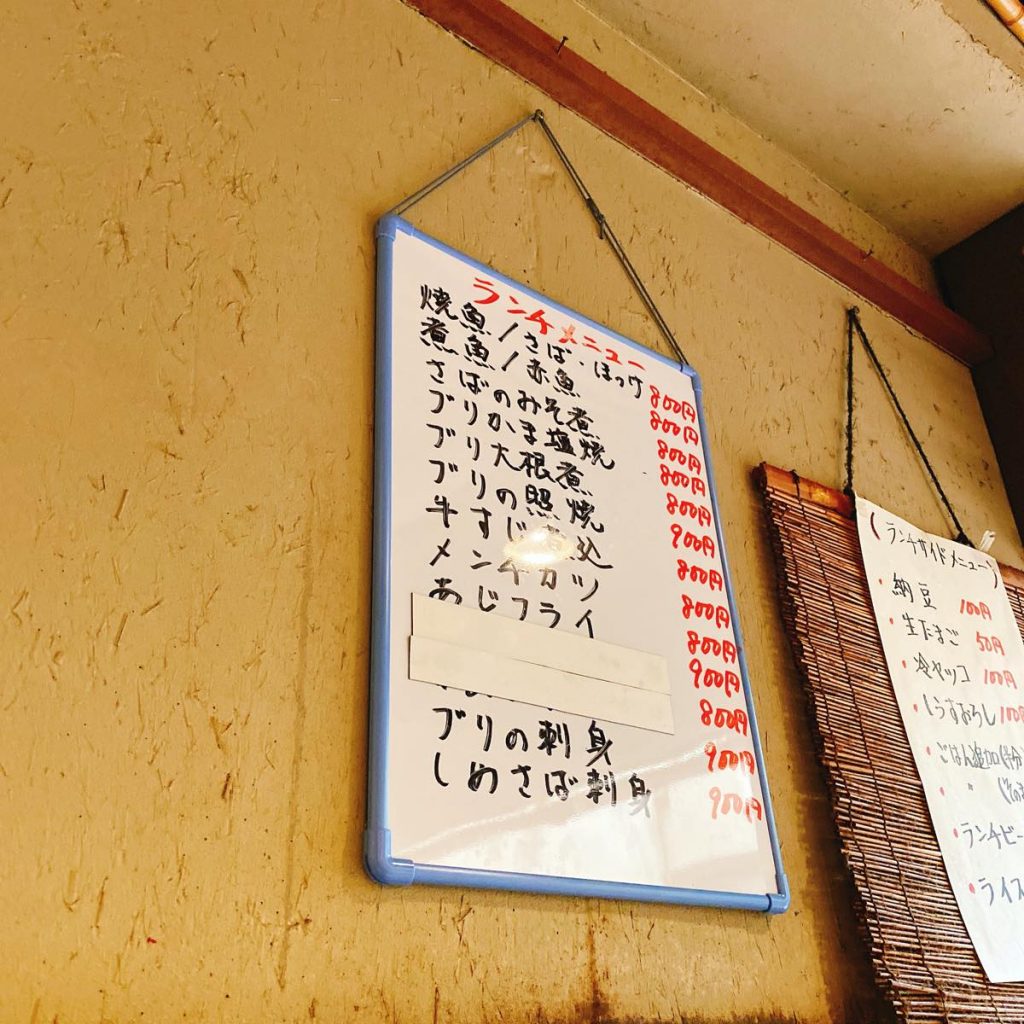 ランチメニュー
焼魚/さば・ほっけ 800円
煮魚/赤魚 800円
さばのみそ煮 800円
ブリかま塩焼 800円
ブリ大根煮 800円
ブリの照焼 900円
牛すじ 込 800円
メンチカツ 800円
あじフライ 800円
900円
800円
ブリの刺身 900円
しめさば刺身 900円
(ランチサイドメニュー)
・納豆 100円
・生たまご 50円
・冷ヤッコ 100円
・しらすおろし 100
・ごはん追加(半分)
・〃
・ランチビー
・ライス